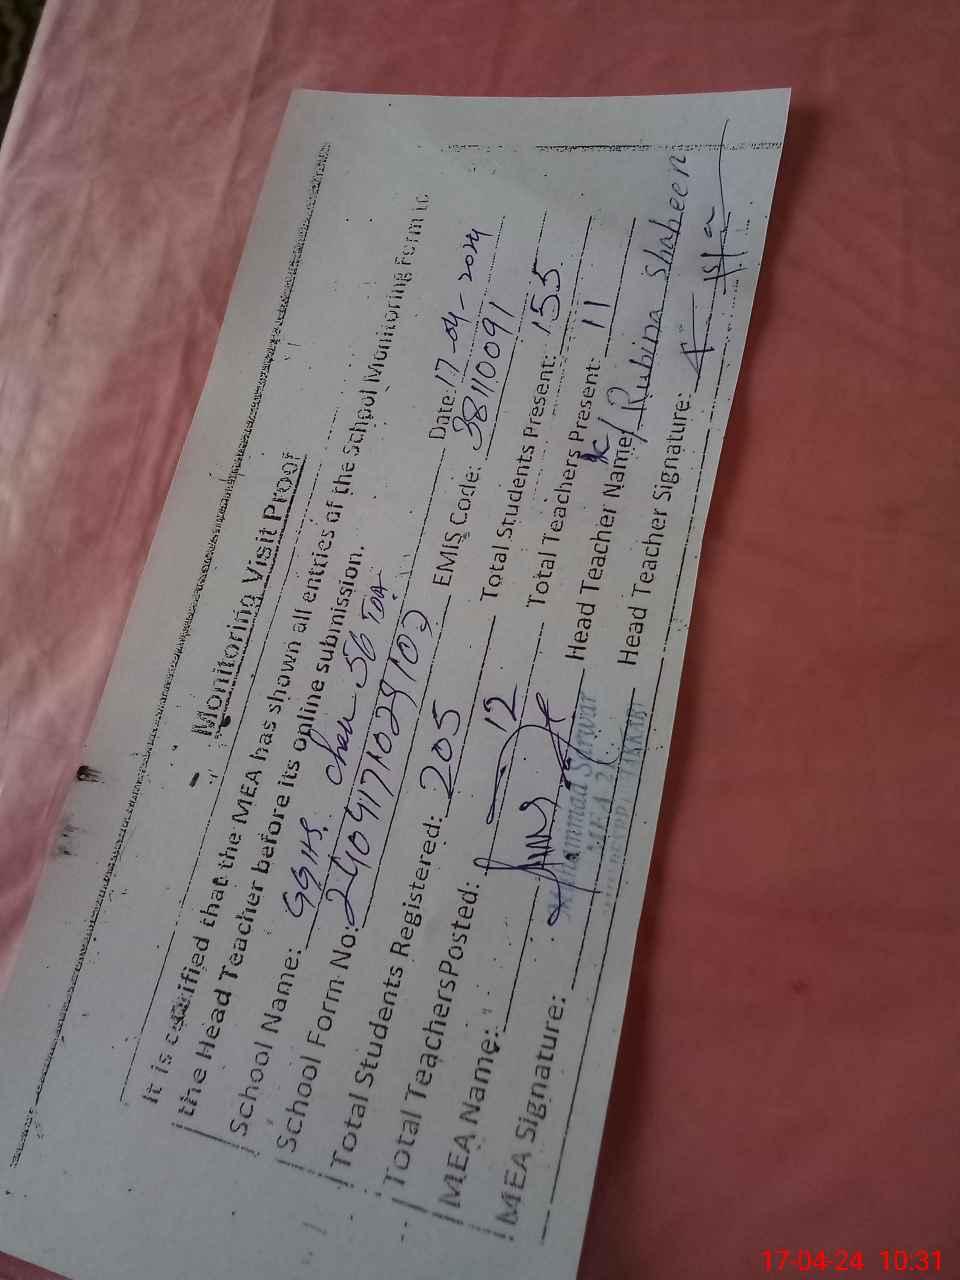 Monitoring Visit Proof
It is certified that the MEA has shown all entries of the School Monitoring Form to
the Head Teacher before its online submission.
School Name: GGHS Chak 56 TDA Date: 17-04-2024
School Form No: EMIS Code: 38110091
Total Students Registered: 205 Total Students Present: 155
Total Teachers Posted: 12 Total Teachers Present: 11
MEA Name: Head Teacher Name I/C Rubina Shaheen
MEA Signature: Muhammad Sarwar Head Teacher Signature:
MEA
17-04-24 10:31